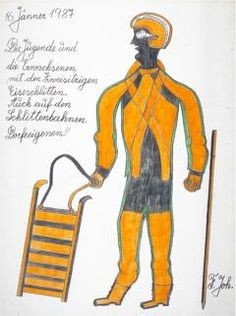 16. Jänner 1987
Die Jugende und
die Erwachsenen
mit den Zweisitzigen
Eiseschlitten.
Auch auf den
Schlittenbahnen
Dorfeigenen!!
F. Joh.